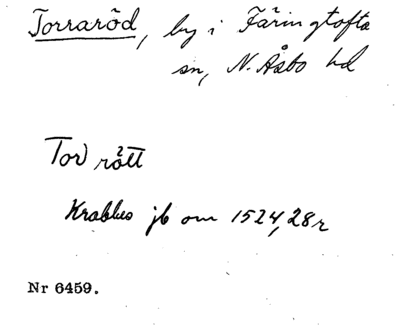 Torraröd, by i Färingtofta
sn, N. Åsbo hd
Tord rått
Krabbes jb om 1524, 28 r
Nr 6459.